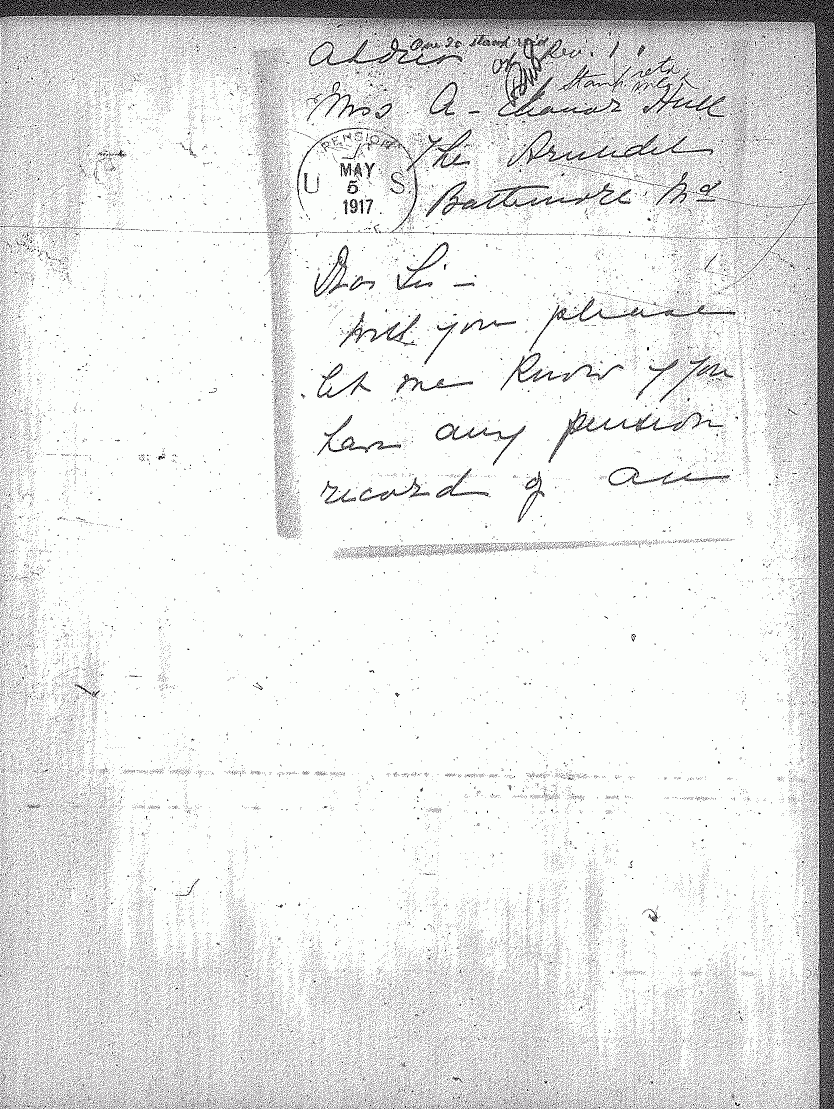 Address
One 2c stamp
Rev. 1.
Stamp retd
Mrs A - Hull
The Arundel
Baltimore Md
PENSION
U S
MAY
5
1917
Dear Sir -
Will you please
let me know if you
have any pension
record of an